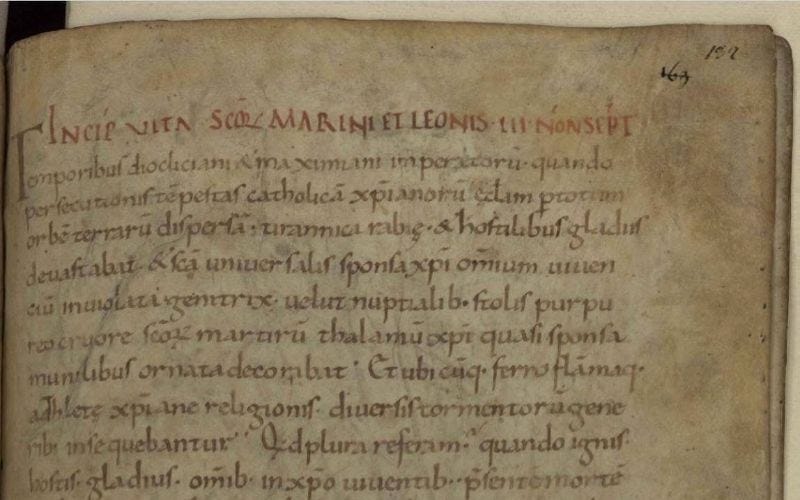 192
163
INCIP̄ VITA SCŌꝜ MARINI ET LEONIS· III· NŌN SEPT̄
Temporibus diocliciani & maximiani imperatorū· quando
persecutionis tēpestas catholicā xp̄ianorū ęc̄lam p totum
orbē terrarū dispersā· tirannica rabię· & hostilibus gladiis
devastabat̄· & sc̄a universalis sponsa xp̄i om̄ium viven
ciū inviolata genitrix· velut nuptialib· stolis purpu
reo cruore sc̄oꝝ martirū thalamū xp̄i quasi sponsa
munilibus ornata decorabat· Et ubicūq· ferro flāmaq·
adhletę xp̄iane religionis· diversis tormentorū gene
ribus insequebantur· Qd plura referam· quando ignis·
hostis· gladius· om̄ib· in xp̄o viventib· p̄sente mortē